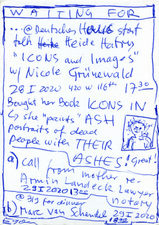 WAITING FOR
...@ Deutsches Haus start
talk Heide Hatry
"ICONS and Images"
w/ Nicole Grünewald
28 I 2020 420 W 116th 17 30
Bought her Book ICONS IN
she "paints" ASH
portraits of dead
people with THEIR
ASHES! Great!
a) call from mother re-
Armin Landeck Lawyer
29 I 2020 notary
@ 313 for dinner
b) Marc van Schendel 29 I 2020